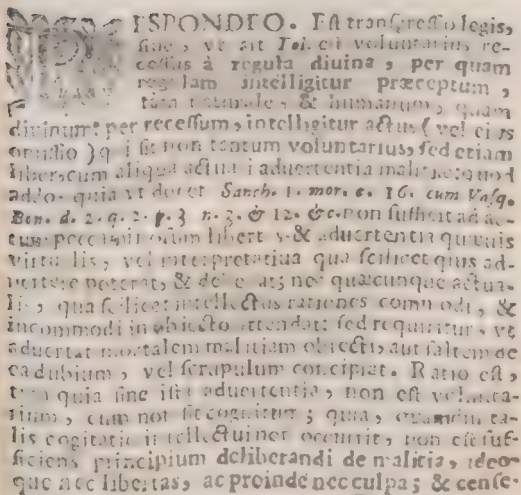 RESPONDEO. Est transgressio legis,
siue, vt ait Tol. est voluntarius re-
cessus à regula diuina, per quam
regulam intelligitur præceptum,
tam naturale, & humanum, quam
diuinum: per recessum, intelligitur actus (vel eius
omissio) qui sit non tantum voluntarius, sed etiam
liber, cum aliqua actuali aduertentia malitiæ: quod
addo. quia vt docet Sanch. 1. mor. c. 16. cum Vasq.
Bon. d. 2. q. 2. p. 3 n. 3. & 12. &c. non sufficit ad ac-
tum peccaminosum libertas & aduertentia quæuis
virtualis, vel interpretatiua qua scilicet quis ad-
uertere poterat, & debeat; nec quæcunque actua-
lis, qua scilicet intellectus rationes commodi, &
incommodi in obiecto attendat: sed requiritur, vt
aduertat mortalem malitiam obiecti, aut saltem de
ea dubium, vel scrupulum concipiat. Ratio est,
tum quia sine ista aduertentia, non est volunta-
rium, cum non sit cognitum; quia, quamdiu ta-
lis cogitatio intellectui non occurrit, non est suf-
ficiens principium deliberandi de malitia, ideo-
que nec libertas, ac proinde nec culpa; & cense-